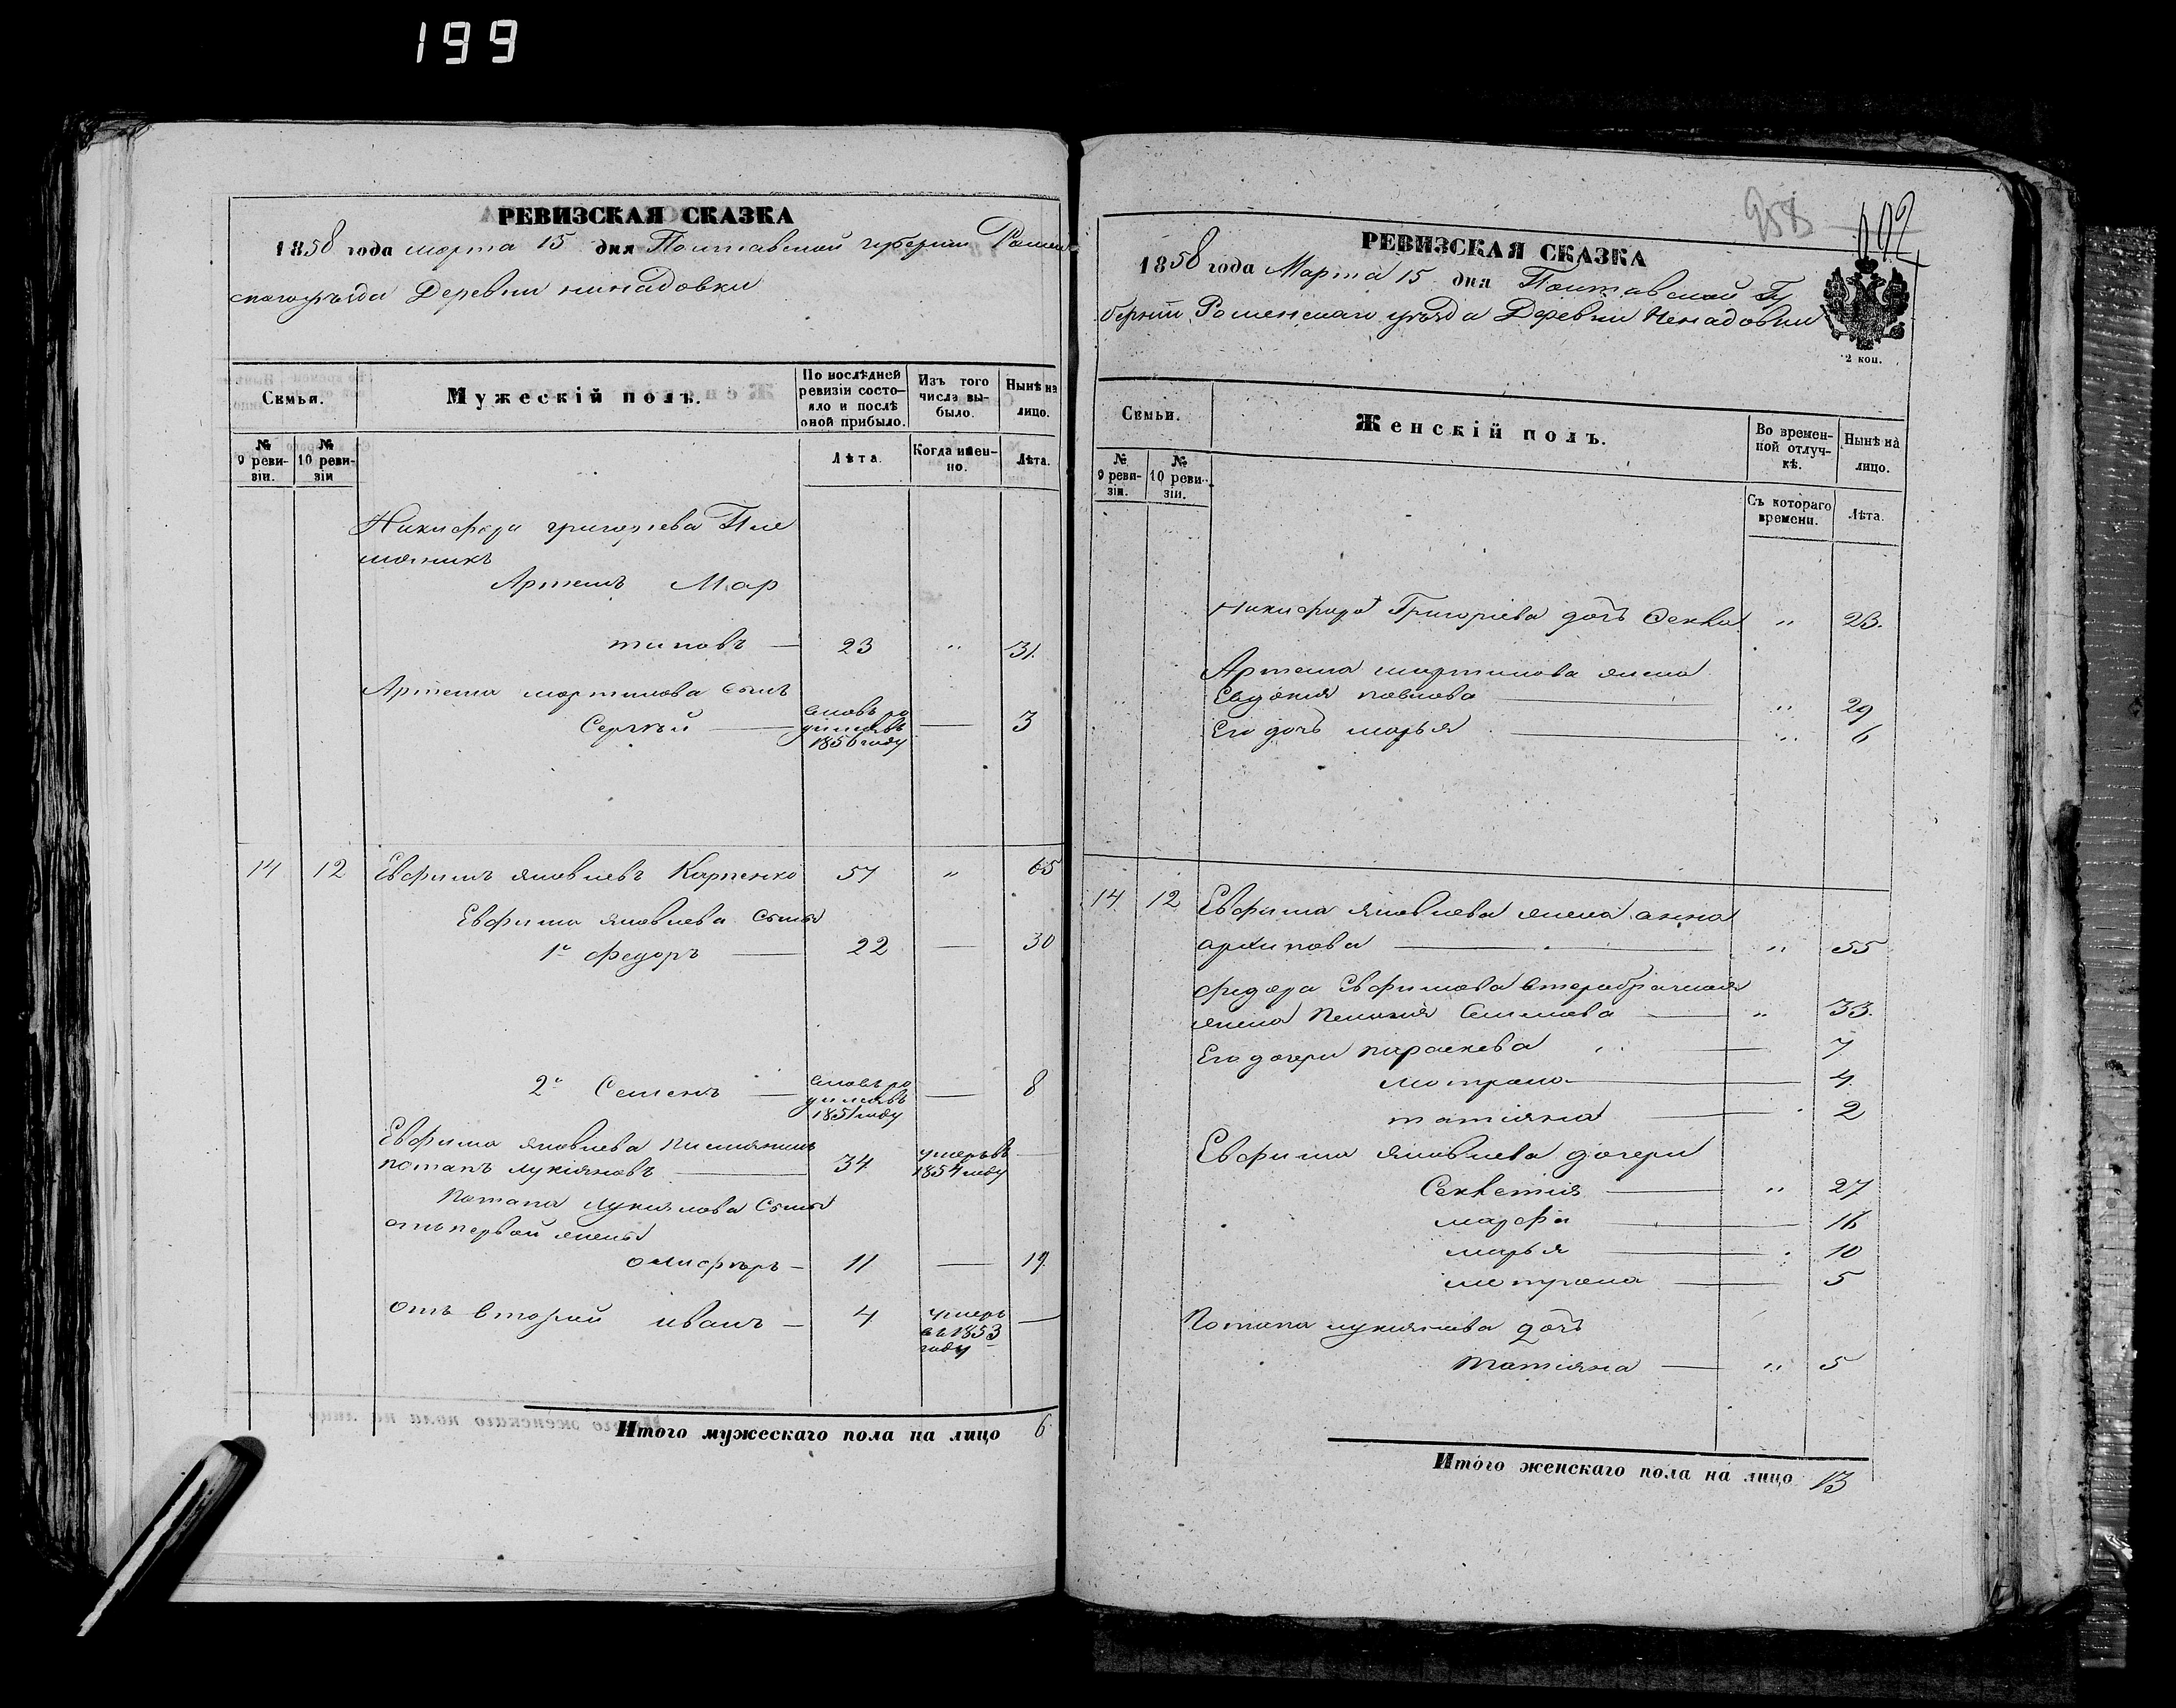 199
РЕВИЗСКАЯ СКАЗКА
1858 года марта 15 дня Полтавской губернии Ромен
скагоуѣзда Деревни ненадовки
Семьи.
Мужескій полъ.
По послѣдней ревизіи состояло и послѣ оной прибыло.
Изъ того числа выбыло.
Нынѣ на лицо.
№ 9 ревизіи.
№ 10 ревизіи
Лѣта.
Когда именно.
Лѣта.
Никифора григорьева Пле
мяникъ
Артемъ Мар
тиновъ — 23 " 31.
Артема мартинова сынъ
Сергѣй — вновь родившiйся 1856 году — 3
14 12 Евфимъ яковлевъ Карпенко 57 " 65
Евфима яковлева сыны
1й федоръ — 22 — 30
2й Семенъ — вновь ро 1851 году — 8
Евфима яковлева племянникъ
потапъ лукіяновъ — 34 умеръ въ 1854 году —
Потапа лукіянова Сыны
отъ первой жены
олиферъ — 11 — 19.
отъ второй иванъ — 4 умеръ въ 1853 году —
Итого мужескаго пола на лицо 6
958
РЕВИЗСКАЯ СКАЗКА
1858 года Марта 15 дня Полтавской Гу
берніи Роменскаго уѣзда Деревни Ненадовки
2 коп.
Семьи.
Женскій полъ.
Во временной отлучкѣ.
Нынѣ на лицо.
№ 9 ревизіи.
№ 10 ревизіи.
Съ котораго времени.
Лѣта.
Никифора Григоріева дочь Фекла " 23.
Артема мартинова жена
Евдокия павлова — " 29
Его дочь марья — " 6
14. 12 Евфима яковлева жена анна
архипова — " 55
федора Евфимова второбрачная
жена Пелагия Семенова — " 33.
Его дочери параскева " — 7
мотрона — 4.
татіяна — 2
Евфима яковлева дочери
— " 27
марфа — 16
марья — 10
мотрона — 5
Потапа лукіянова дочь
татіяна — " 5
Итого женскаго пола на лицо 13